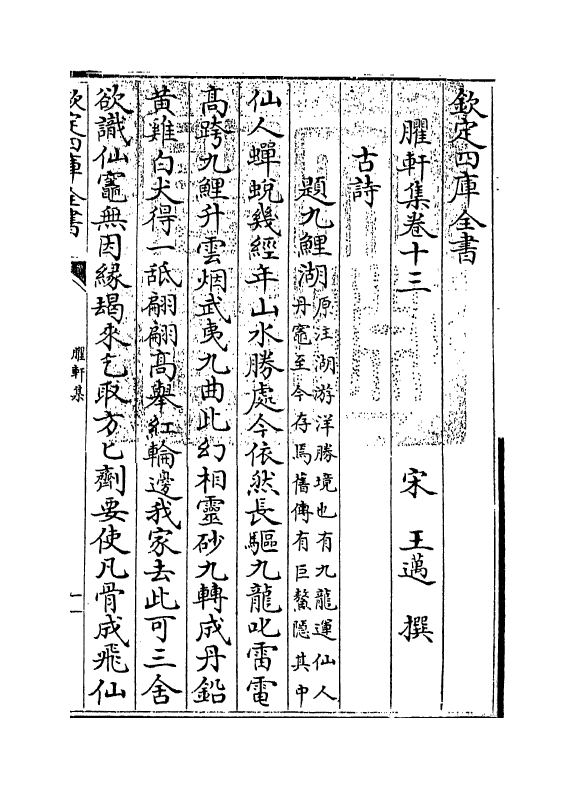 欽定四庫全書
臞軒集卷十三
宋 王邁 撰
古詩
題九鯉湖原注湖游洋勝境也有九龍運仙人
丹竈至今存焉舊傳有巨鰲隱其中
仙人蟬蛻幾經年山水勝處今依然長驅九龍叱雷電
高跨九鯉升雲烟武夷九曲此幻相靈砂九轉成丹鉛
黄雞白犬得一舐翩翩高舉紅輪邊我家去此可三舍
欲識仙竈無因緣朅來乞取方匕劑要使凡骨成飛仙
欽定四庫全書
臞軒集
一